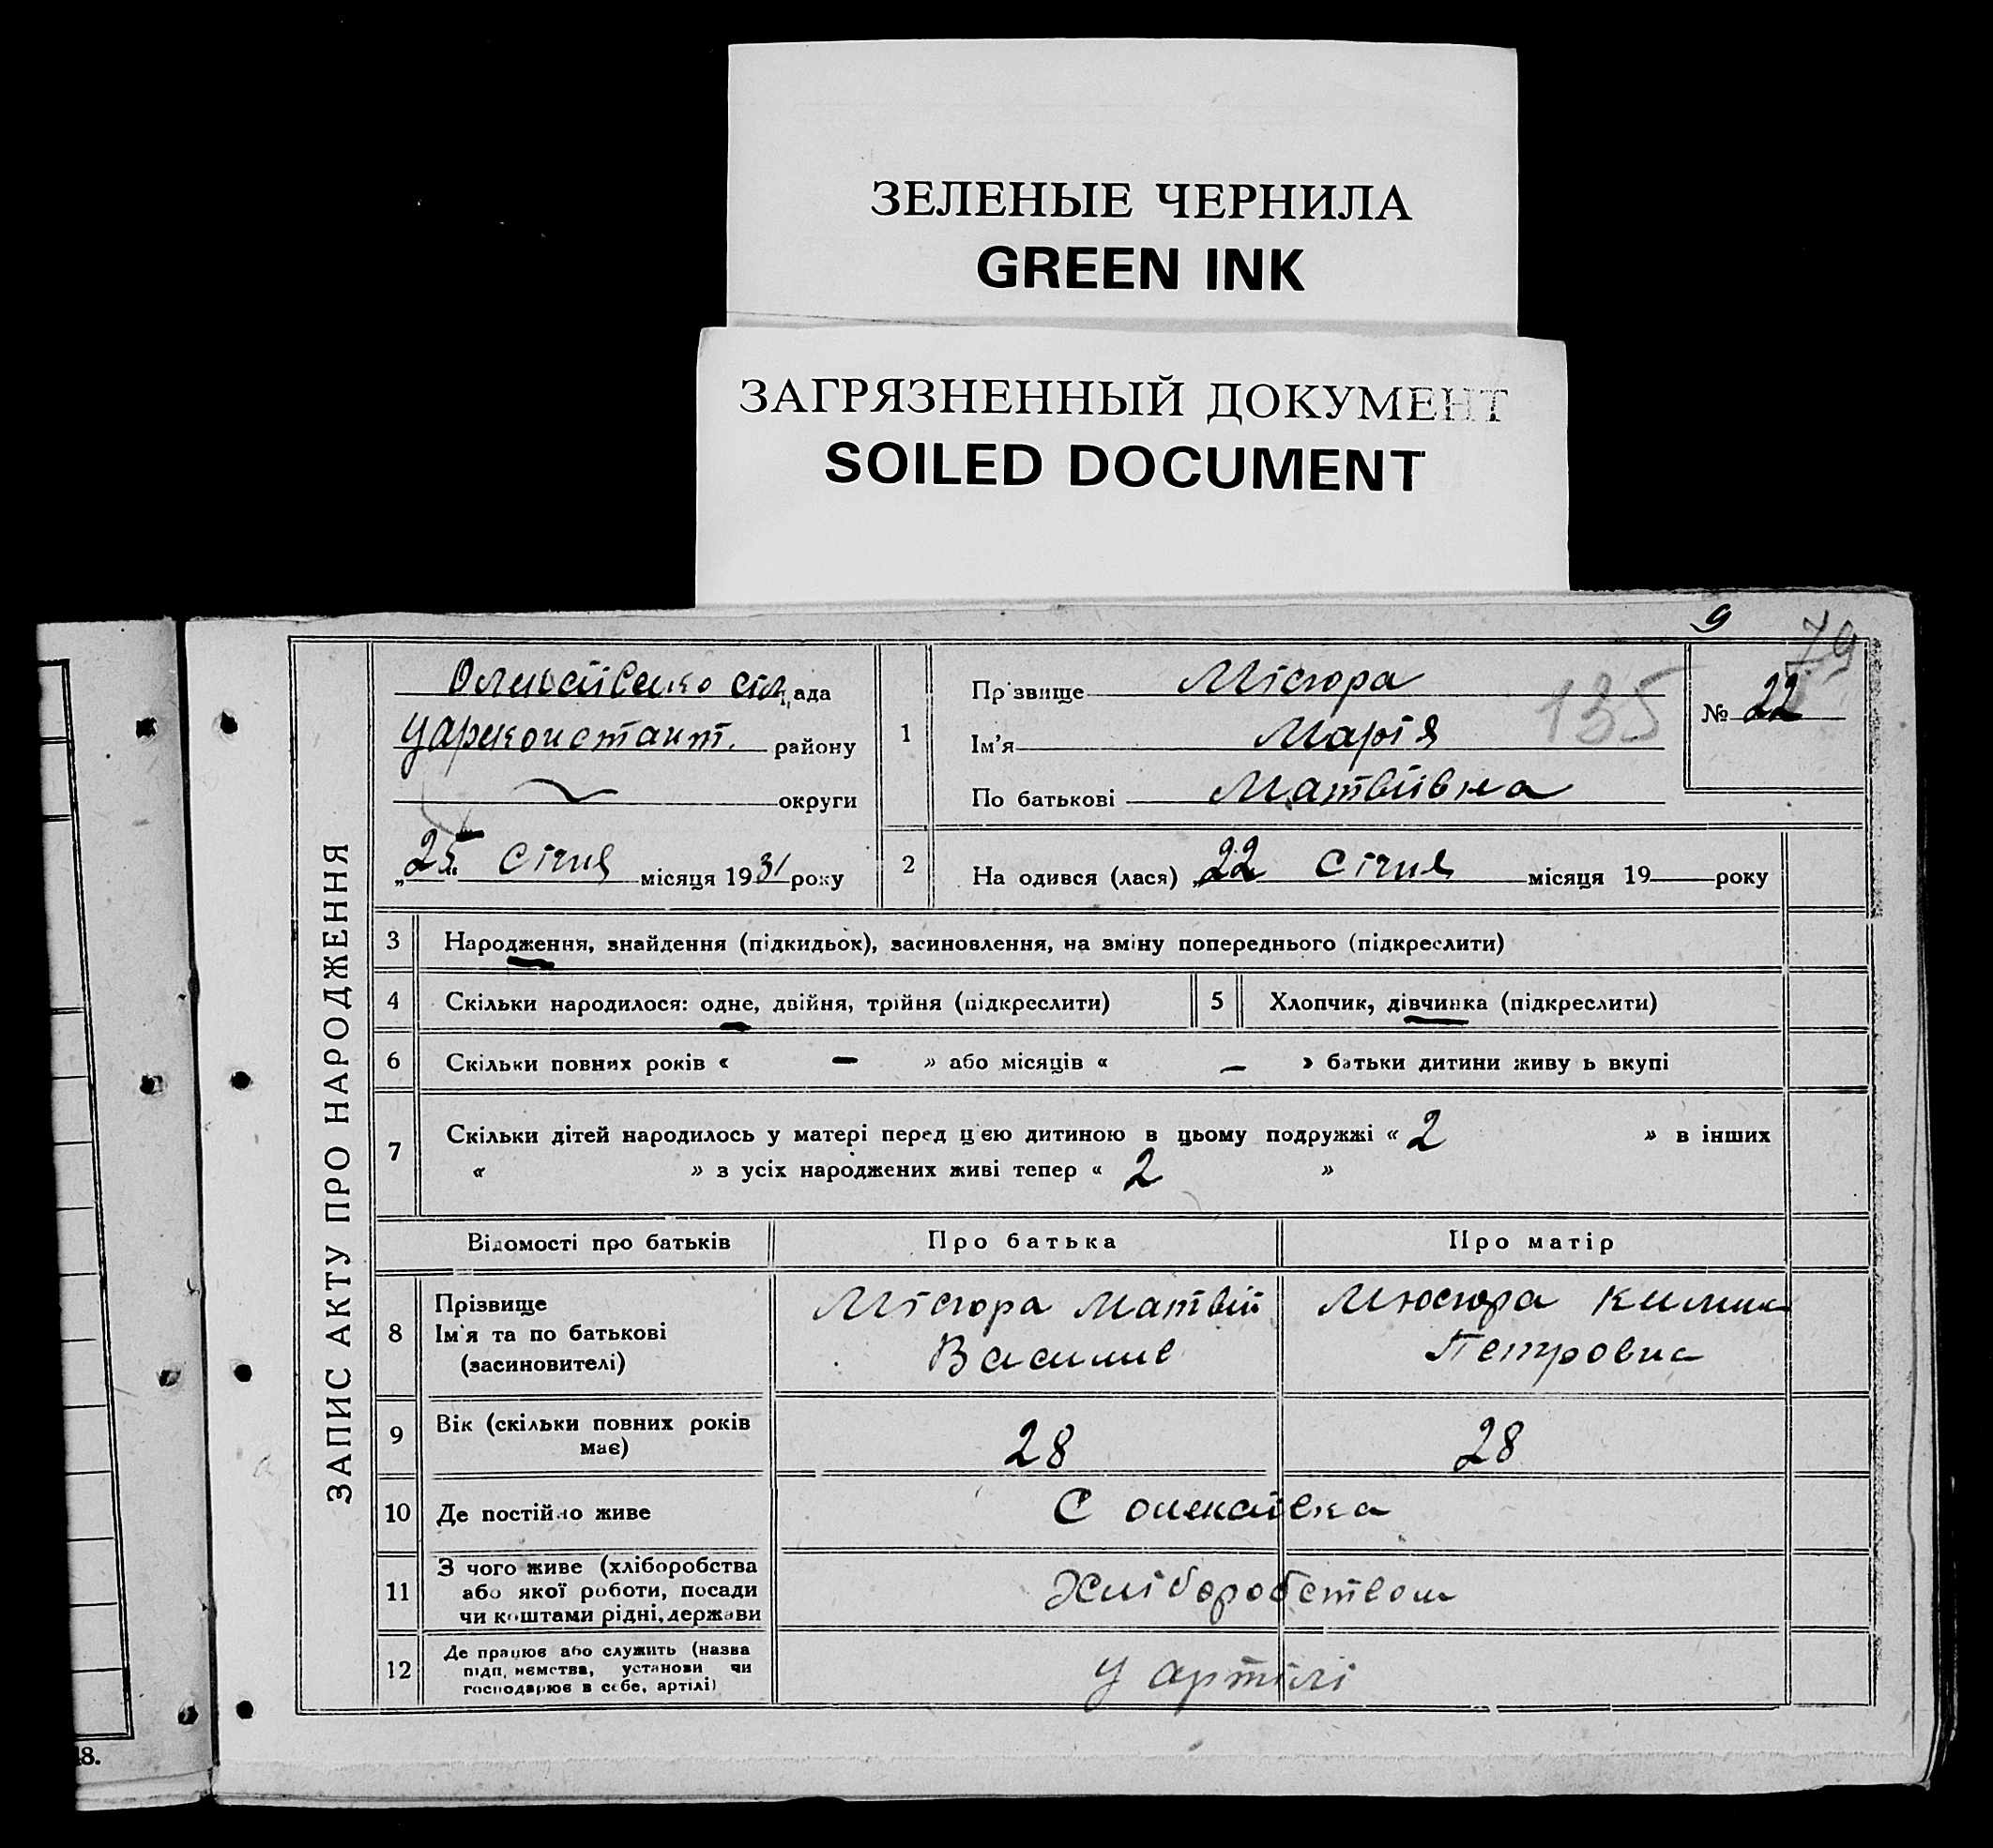 ЗЕЛЕНЫЕ ЧЕРНИЛА
GREEN INK
ЗАГРЯЗНЕННЫЙ ДОКУМЕНТ
SOILED DOCUMENT
9
79
ЗАПИС АКТУ ПРО НАРОДЖЕННЯ
сіл, ада
Цареконстант. району
округи
„25" Січня місяця 1931 року
1
Прізвище Місюра
135
Ім'я Марія
По батькові Матвіївна
№ 22
2 На одився (лася) „22 Січня місяця 19 року
3 Народження, знайдення (підкидьок), засиновлення, на зміну попереднього (підкреслити)
4 Скільки народилося: одне, двійня, трійня (підкреслити)
5 Хлопчик, дівчинка (підкреслити)
6 Скільки повних років « — » або місяців « — » батьки дитини живу ь вкупі
7 Скільки дітей народилось у матері перед цією дитиною в цьому подружжі « 2 » в інших
« » з усіх народжених живі тепер « 2 »
Відомості про батьків
Про батька
Про матір
8
Прізвище
Ім'я та по батькові
(засиновителі)
Місюра Матвій
Василів
Мюсюра
Петровна
9
Вік (скільки повних років
має)
28
28
10 Де постійно живе
С
11
З чого живе (хліборобства
або якої роботи, посади
чи коштами рідні, держави
Хліборобством
12
Де працює або служить (назва
підп, немства, установи чи
господарює в себе, артілі)
У артілі
18.